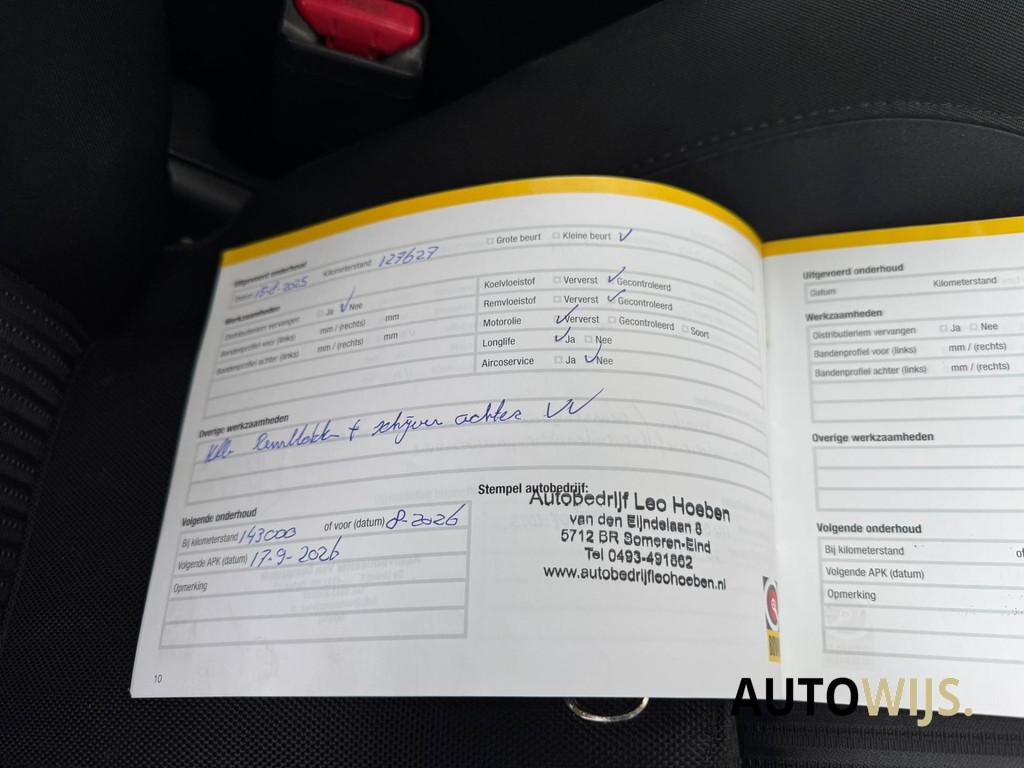 Uitgevoerd onderhoud
Datum 15-8-2025 Kilometerstand 127627 Grote beurt Kleine beurt
Werkzaamheden
Distributieriem vervangen Ja Nee
Bandenprofiel voor (links) mm / (rechts) mm
Bandenprofiel achter (links) mm / (rechts) mm
Koelvloeistof Ververst Gecontroleerd
Remvloeistof Ververst Gecontroleerd
Motorolie Ververst Gecontroleerd Soort
Longlife Ja Nee
Aircoservice Ja Nee
Overige werkzaamheden
Remblokken + schijven achter VV
Volgende onderhoud
Bij kilometerstand 143000 of voor (datum) 8-2026
Volgende APK (datum) 17-9-2026
Opmerking
Stempel autobedrijf:
Autobedrijf Leo Hoeben
van den Eijndelaan 8
5712 BR Someren-Eind
Tel 0493-491662
www.autobedrijfleohoeben.nl
10
Uitgevoerd onderhoud
Datum Kilometerstand
Werkzaamheden
Distributieriem vervangen Ja Nee
Bandenprofiel voor (links) mm / (rechts)
Bandenprofiel achter (links) mm / (rechts)
Overige werkzaamheden
Volgende onderhoud
Bij kilometerstand of
Volgende APK (datum)
Opmerking
AUTOWIJS.